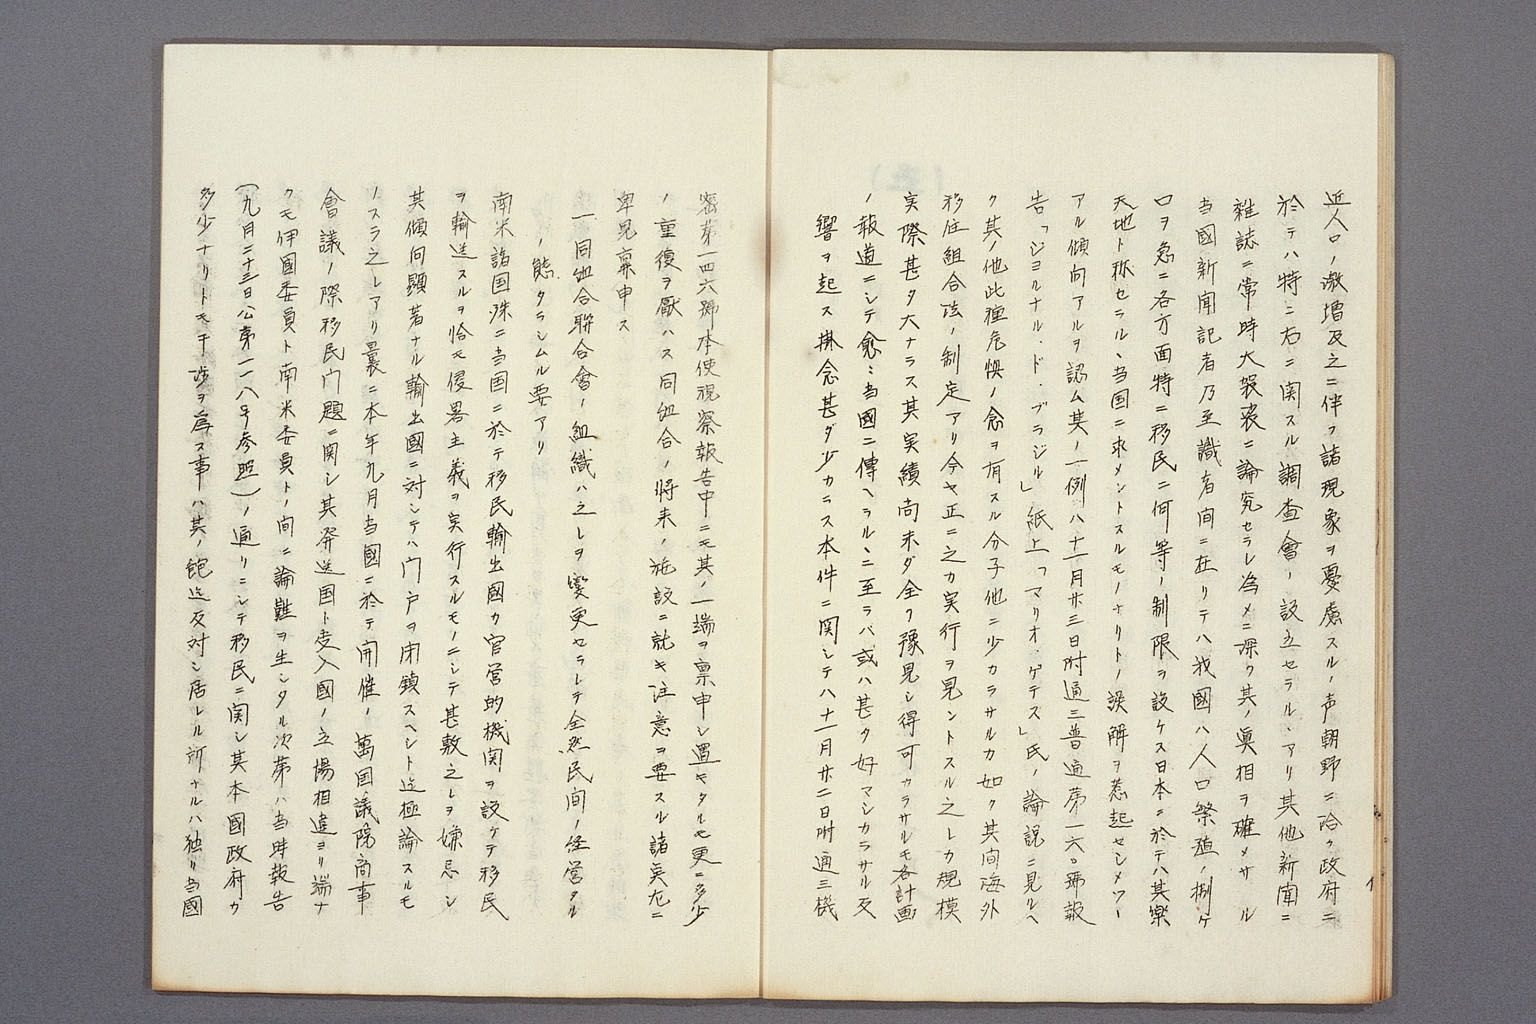 近人口ノ激増及之ニ伴フ諸現象ヲ憂慮スルノ声朝野ニ洽ク政府ニ
於テハ特ニ右ニ関スル調査會ノ設立セラルヽアリ其他新聞ニ
雑誌ニ常時大袈裟ニ論究セラレ為メニ深ク其ノ真相ヲ確メサル
当國新聞記者乃至識者間ニ在リテハ我國ハ人口繁殖ノ捌ケ
口ヲ急ニ各方面特ニ移民ニ何等ノ制限ヲ設ケス日本ニ於テハ其樂
天地ト称セラルヽ当国ニ求メントスルモノナリトノ誤解ヲ惹起セシメツヽ
アル傾向アルヲ認ム其ノ一例ハ十一月廿三日附通三普通第一六〇號報
告「ジヨルナル・ド・ブラジル」紙上「マリオ・ゲデス」氏ノ論説ニ見ルヘ
ク其ノ他此種危惧ノ念ヲ有スル分子他ニ少カラサルカ如ク其間海外
移住組合法ノ制定アリ今ヤ正ニ之カ実行ヲ見ントスル之レカ規模
実際甚タ大ナラス其実績尚未ダ全ク豫見シ得可カラサルモ各計画
ノ報道ニシテ愈々当國ニ傳ヘラルヽニ至ラバ或ハ甚タ好マシカラサル反
響ヲ起ス掛念甚ダ少カラス本件ニ関シテハ十一月廿二日附通三機
密第一四六號本使視察報告中ニモ其ノ一端ヲ禀申シ置キタルモ更ニ多少
ノ重復ヲ厭ハス同組合ノ将来ノ施設ニ就キ注意ヲ要スル諸点左ニ
卑見禀申ス
一同組合聯合會ノ組織ハ之レヲ変更セラレテ全然民間ノ経営タル
ノ態タラシムル要アリ
南米諸国殊ニ当国ニ於テ移民輸出國カ官営的機関ヲ設ケテ移民
ヲ輸送スルヲ恰モ侵畧主義ヲ実行スルモノニシテ甚敷之レヲ嫌忌シ
其傾向顕著ナル輸出國ニ対シテハ門戸ヲ閉鎖スヘシト迄極論スルモ
ノスラ之レアリ曩ニ本年九月当國ニ於テ開催ノ萬国議院商事
會議ノ際移民問題ニ関シ其発送国ト受入國ノ立場相違ヨリ端ナ
クモ伊國委員ト南米委員トノ間ニ論難ヲ生シタル次第ハ当時報告
（九月二十三日公第一一八号参照）ノ通リニシテ移民ニ関シ其本國政府カ
多少ナリトモ干渉ヲ為ス事ハ其ノ飽迄反対シ居レル所ナルハ独リ当國